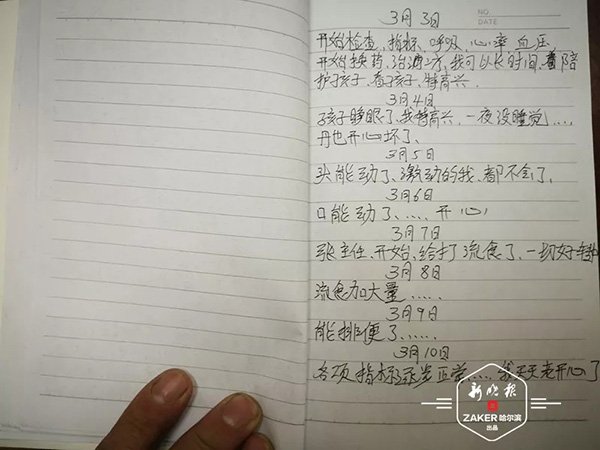 NO.
DATE
3月3日
开始检查,指标、呼吸、心率血压,
开始换药、治洒方,我可以长时间、看陪
护孩子、看孩子、特高兴、
3月4日
孩子睁眼了、我特高兴、一夜没睡觉....
丹也开心坏了、
3月5日
头能动了、激动的我、都不会了、
3月6日
口能动了、.... 开心
3月7日
张主任、开始、给打流食了、一切好转
3月8日
流食加大量.....
3月9日
能排便了.....
3月10日
各项指标逐步正常.... 我天天老开心了
新晚报
ZAKER哈尔滨
出品